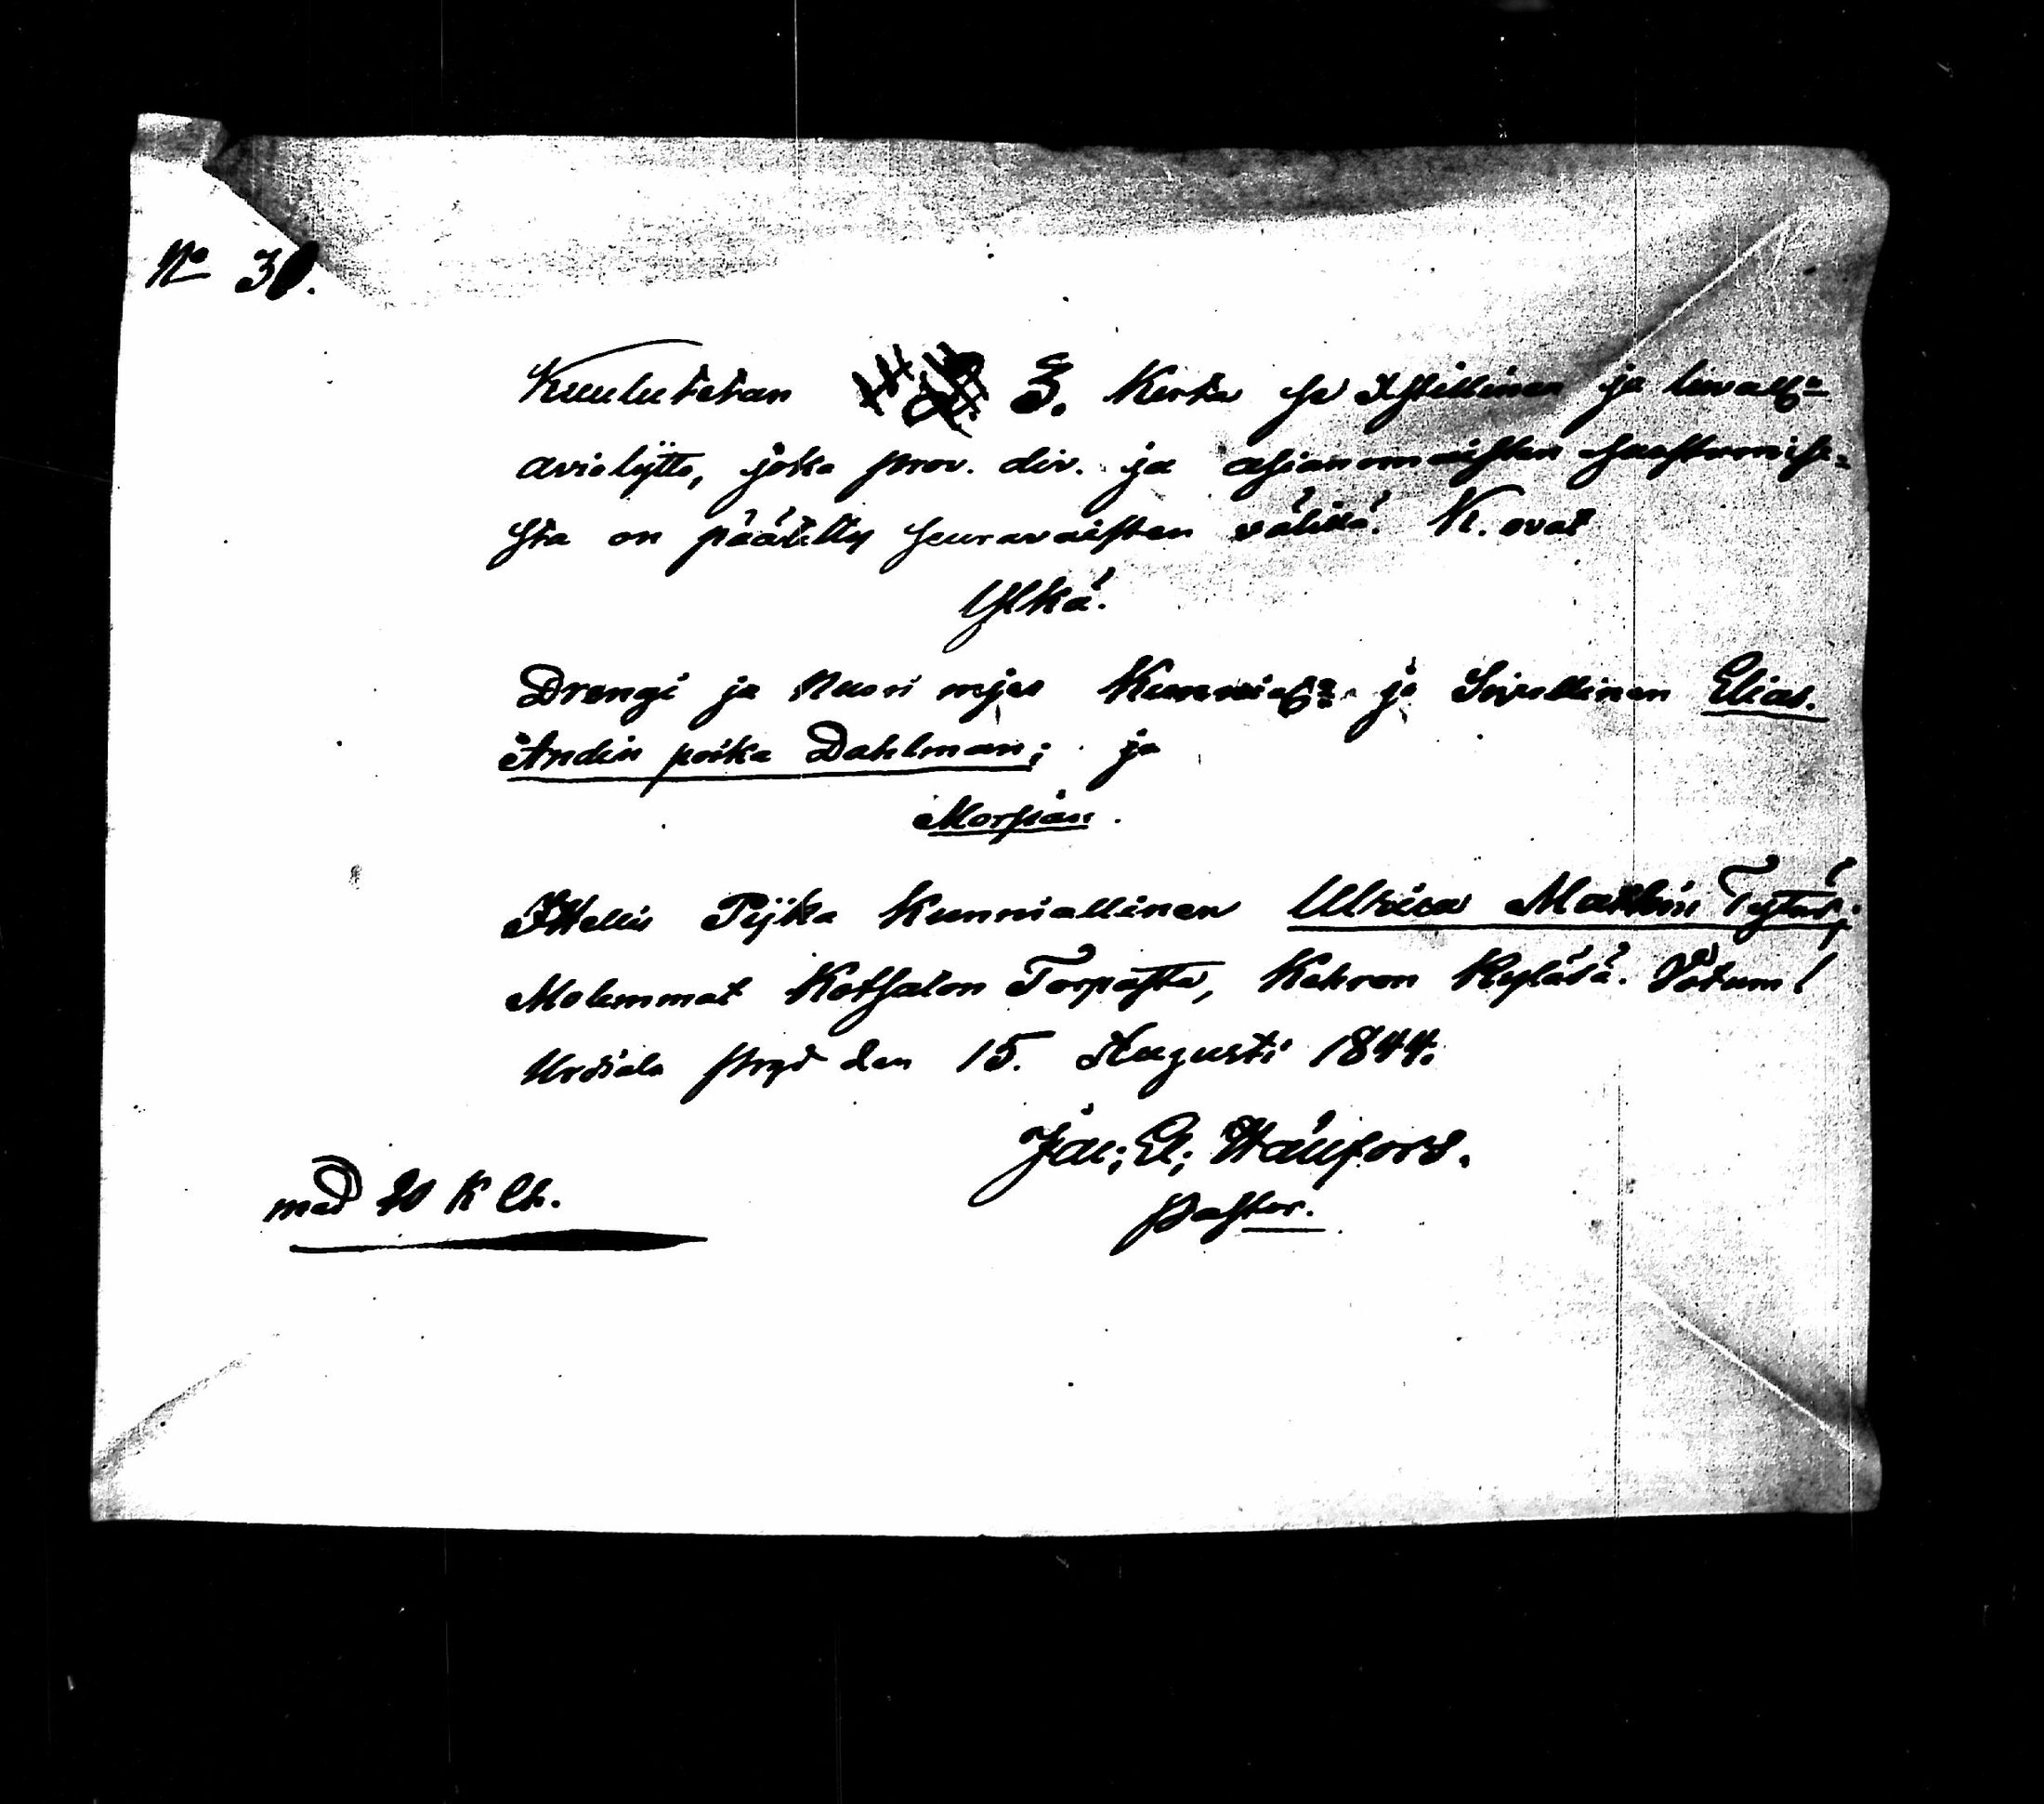 No 30.
Kuulutetan 3. Kerta se Kristillinen ja luvall:
avioliitto, joka prov. div. ja asianomaisten suostumise=
sta on päätetty seuravaisten välillä. N. ovat
Ylkä.
Drengi ja Nuori mjes Kunnial: ja Sivellinen Elias
Andin poika Dahlman; ja
Morsian.
Itellis Pijka Kunniallinen Ulrica Matthin Tytär;
Molemmat Kotsalon Torpasta, Kehron Kyläsä. Votum!
Urdiala den 15. Augusti 1844.
Jac; E; Wallfors.
Pastor.
med 20 K